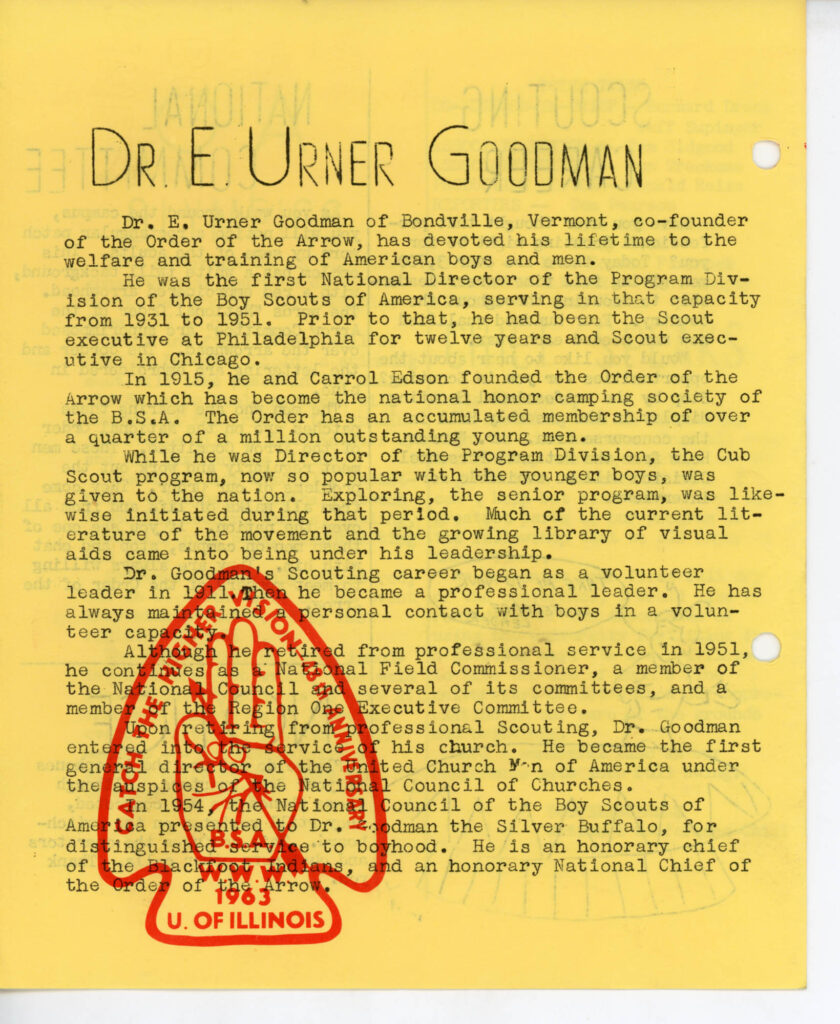 DR. E. URNER GOODMAN
Dr. E. Urner Goodman of Bondville, Vermont, co-founder
of the Order of the Arrow, has devoted his lifetime to the
welfare and training of American boys and men.
He was the first National Director of the Program Div-
ision of the Boy Scouts of America, serving in that capacity
from 1931 to 1951. Prior to that, he had been the Scout
executive at Philadelphia for twelve years and Scout exec-
utive in Chicago.
In 1915, he and Carrol Edson founded the Order of the
Arrow which has become the national honor camping society of
the B.S.A. The Order has an accumulated membership of over
a quarter of a million outstanding young men.
While he was Director of the Program Division, the Cub
Scout program, now so popular with the younger boys, was
given to the nation. Exploring, the senior program, was like-
wise initiated during that period. Much of the current lit-
erature of the movement and the growing library of visual
aids came into being under his leadership.
Dr. Goodman's Scouting career began as a volunteer
leader in 1911. Then he became a professional leader. He has
always maintained a personal contact with boys in a volun-
teer capacity.
Although he retired from professional service in 1951,
he continues as a National Field Commissioner, a member of
the National Council and several of its committees, and a
member of the Region One Executive Committee.
Upon retiring from professional Scouting, Dr. Goodman
entered into the service of his church. He became the first
general director of the United Church Men of America under
the auspices of the National Council of Churches.
In 1954, the National Council of the Boy Scouts of
America presented to Dr. Goodman the Silver Buffalo, for
distinguished service to boyhood. He is an honorary chief
of the Blackfoot Indians, and an honorary National Chief of
the Order of the Arrow.
CATCH THE HIGHER VISION-48TH ANNIVERSARY
B.S.A.
W.W.W.
1963
U. OF ILLINOIS